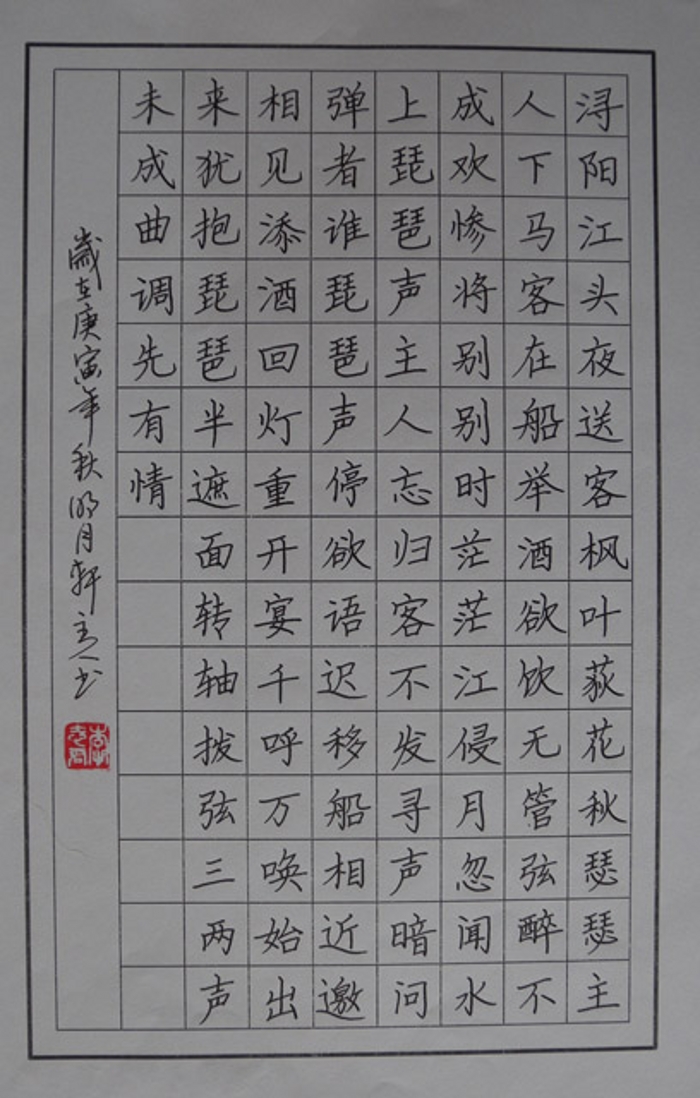 浔阳江头夜送客枫叶荻花秋瑟瑟主
人下马客在船举酒欲饮无管弦醉不
成欢惨将别别时茫茫江侵月忽闻水
上琵琶声主人忘归客不发寻声暗问
弹者谁琵琶声停欲语迟移船相近邀
相见添酒回灯重开宴千呼万唤始出
来犹抱琵琶半遮面转轴拨弦三两声
未成曲调先有情
歲在庚寅年秋明月轩主人书